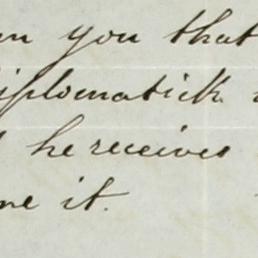 you that
diplomatick
he receives
me it.